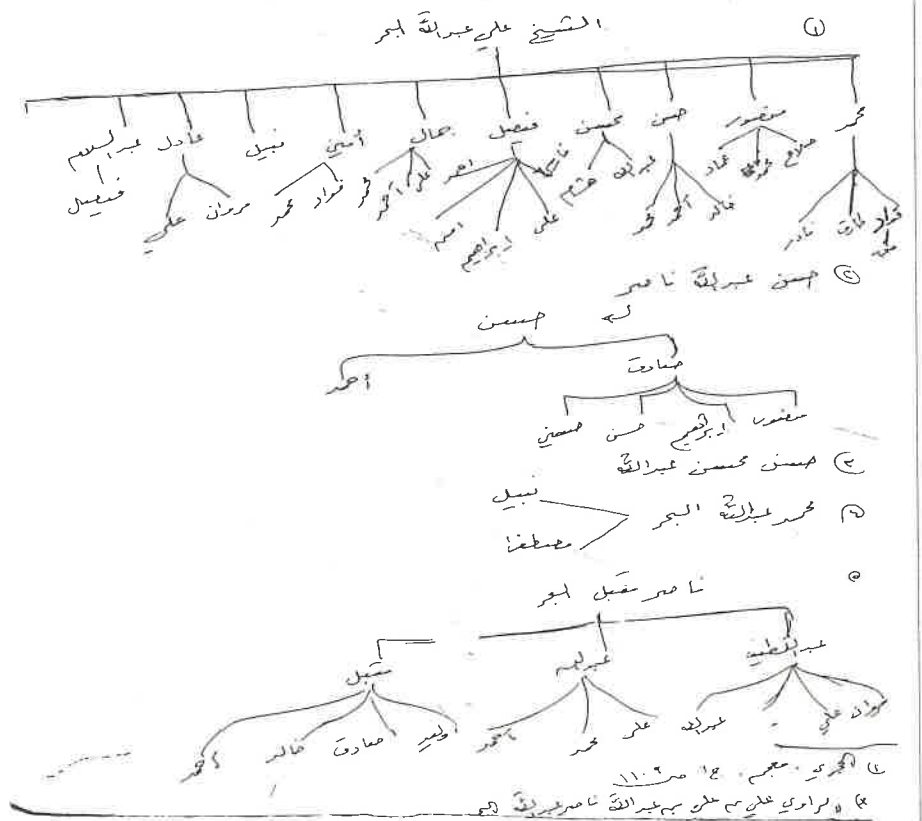 ① الشيخ علي عبدالله البحر
محمد منصور حسن محسن فيصل جمال أمين نبيل عادل عبدالسلام
فؤاد طارق نادر صلاح محمد عماد خالد أحمد محمد عبدالله هشام علي ابراهيم علي أحمد محمد فؤاد محمد مروان علي فيصل
② حسن عبدالله ناصر
حسن
صادق أحمد
منصور ابراهيم حسن
③ حسن محسن عبدالله
④ محمد عبدالله البحر نبيل
مصطفى
٥ ناصر مقبل البحر
عبداللطيف عبدالله مقبل
مروان علي عبدالله علي محمد أحمد وليد صادق خالد أحمد
(١) الحجري . معجم . ج١ ص ١١٠٩
الراوي علي بن علي بن عبدالله ناصر عبدالله البحر